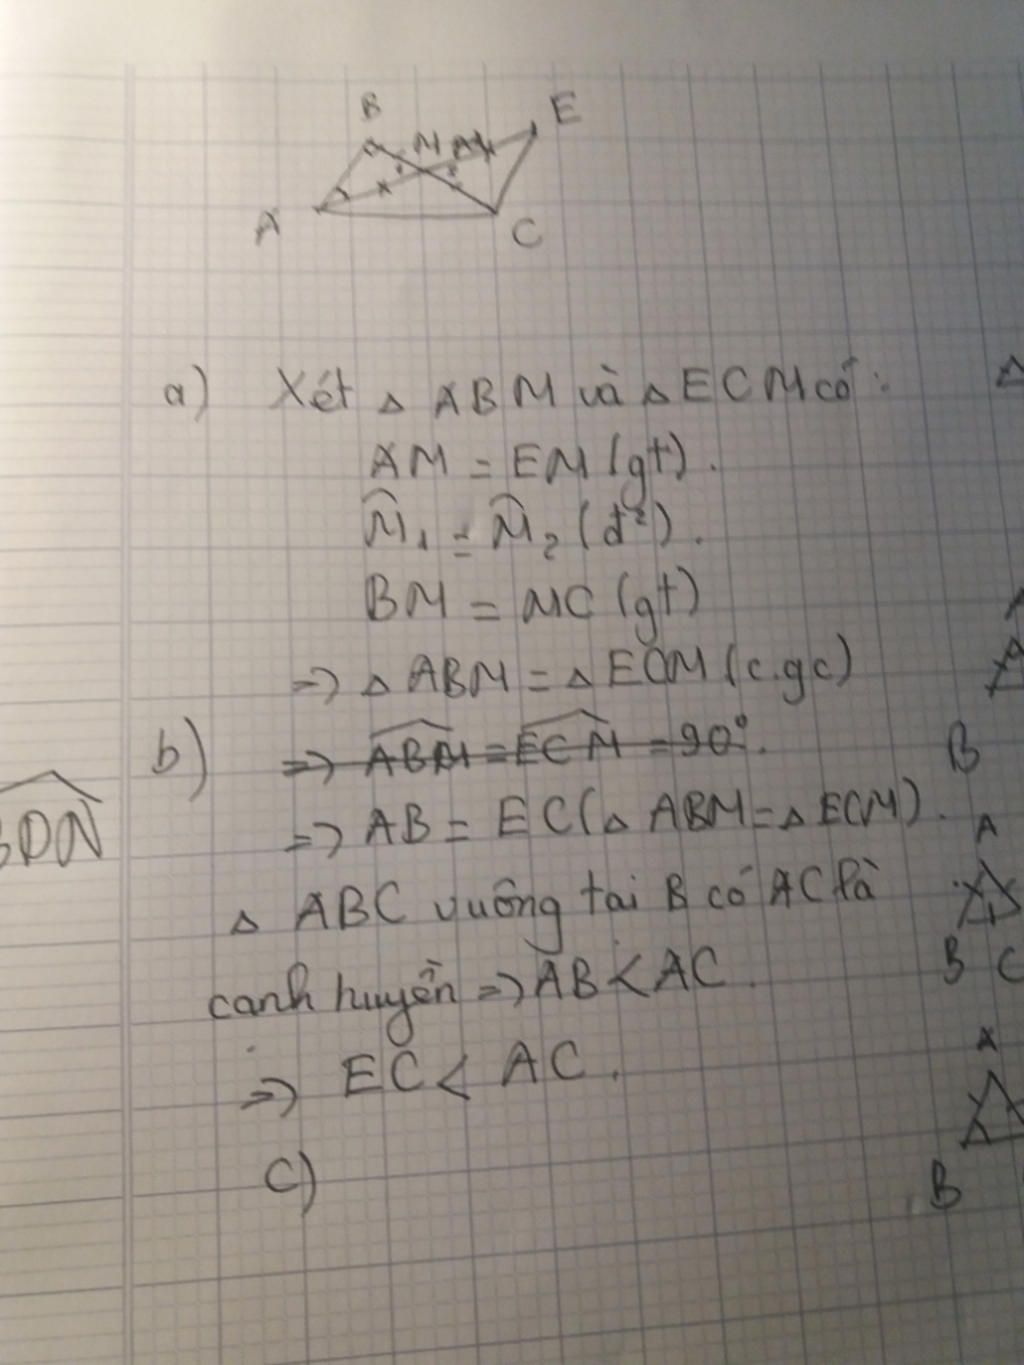 B
E
M
A
C
a) Xét △ ABM và △ ECM có:
AM = EM (gt).
M̂₁ = M̂₂ (đ²).
BM = MC (gt)
=> △ ABM = △ ECM (c.g.c)
b) => ABM = ECM = 90°.
=> AB = EC (△ ABM = △ ECM).
△ ABC vuông tai B có AC là
canh huyền => AB < AC.
=> EC < AC.
c)
BDN
B
A
B C
B